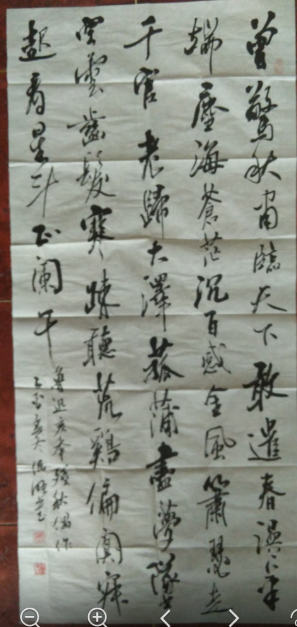 曾驚秋肅臨天下敢遣春溫上筆
端塵海蒼茫沉百感金風蕭瑟走
千官老歸大澤菰蒲盡夢墜
空雲齒髮寒竦聽荒鷄偏闃寂
起看星斗正闌干
魯迅亥年殘秋偶作